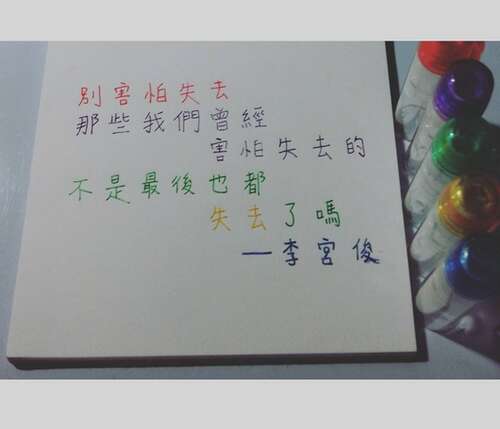 別害怕失去
那些我們曾經
害怕失去的
不是最後也都
失去了嗎
—李宮俊